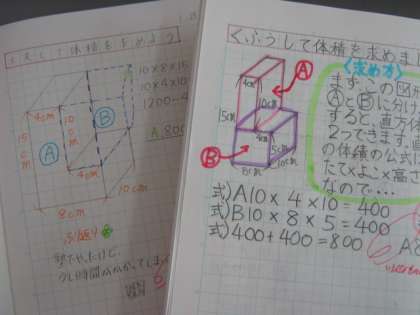 て体積を求めよう
10×8×15
10×4×10
1200-4
A 800
4cm
10cm
15cm
Ⓐ
Ⓑ
4cm
10cm
8cm
くふうして体積を求めまし
<求め方>
まず、この図形
ⒶとⒷに分け
すると、直方体
2つできます。直
の体積の公式
たて×よこ×高さ
なので…
Ⓐ
4cm
10cm
15cm
4cm
5cm
10cm
8cm
Ⓑ
式)A10×4×10=400
式)B10×8×5=400
式)400+400=800
A8